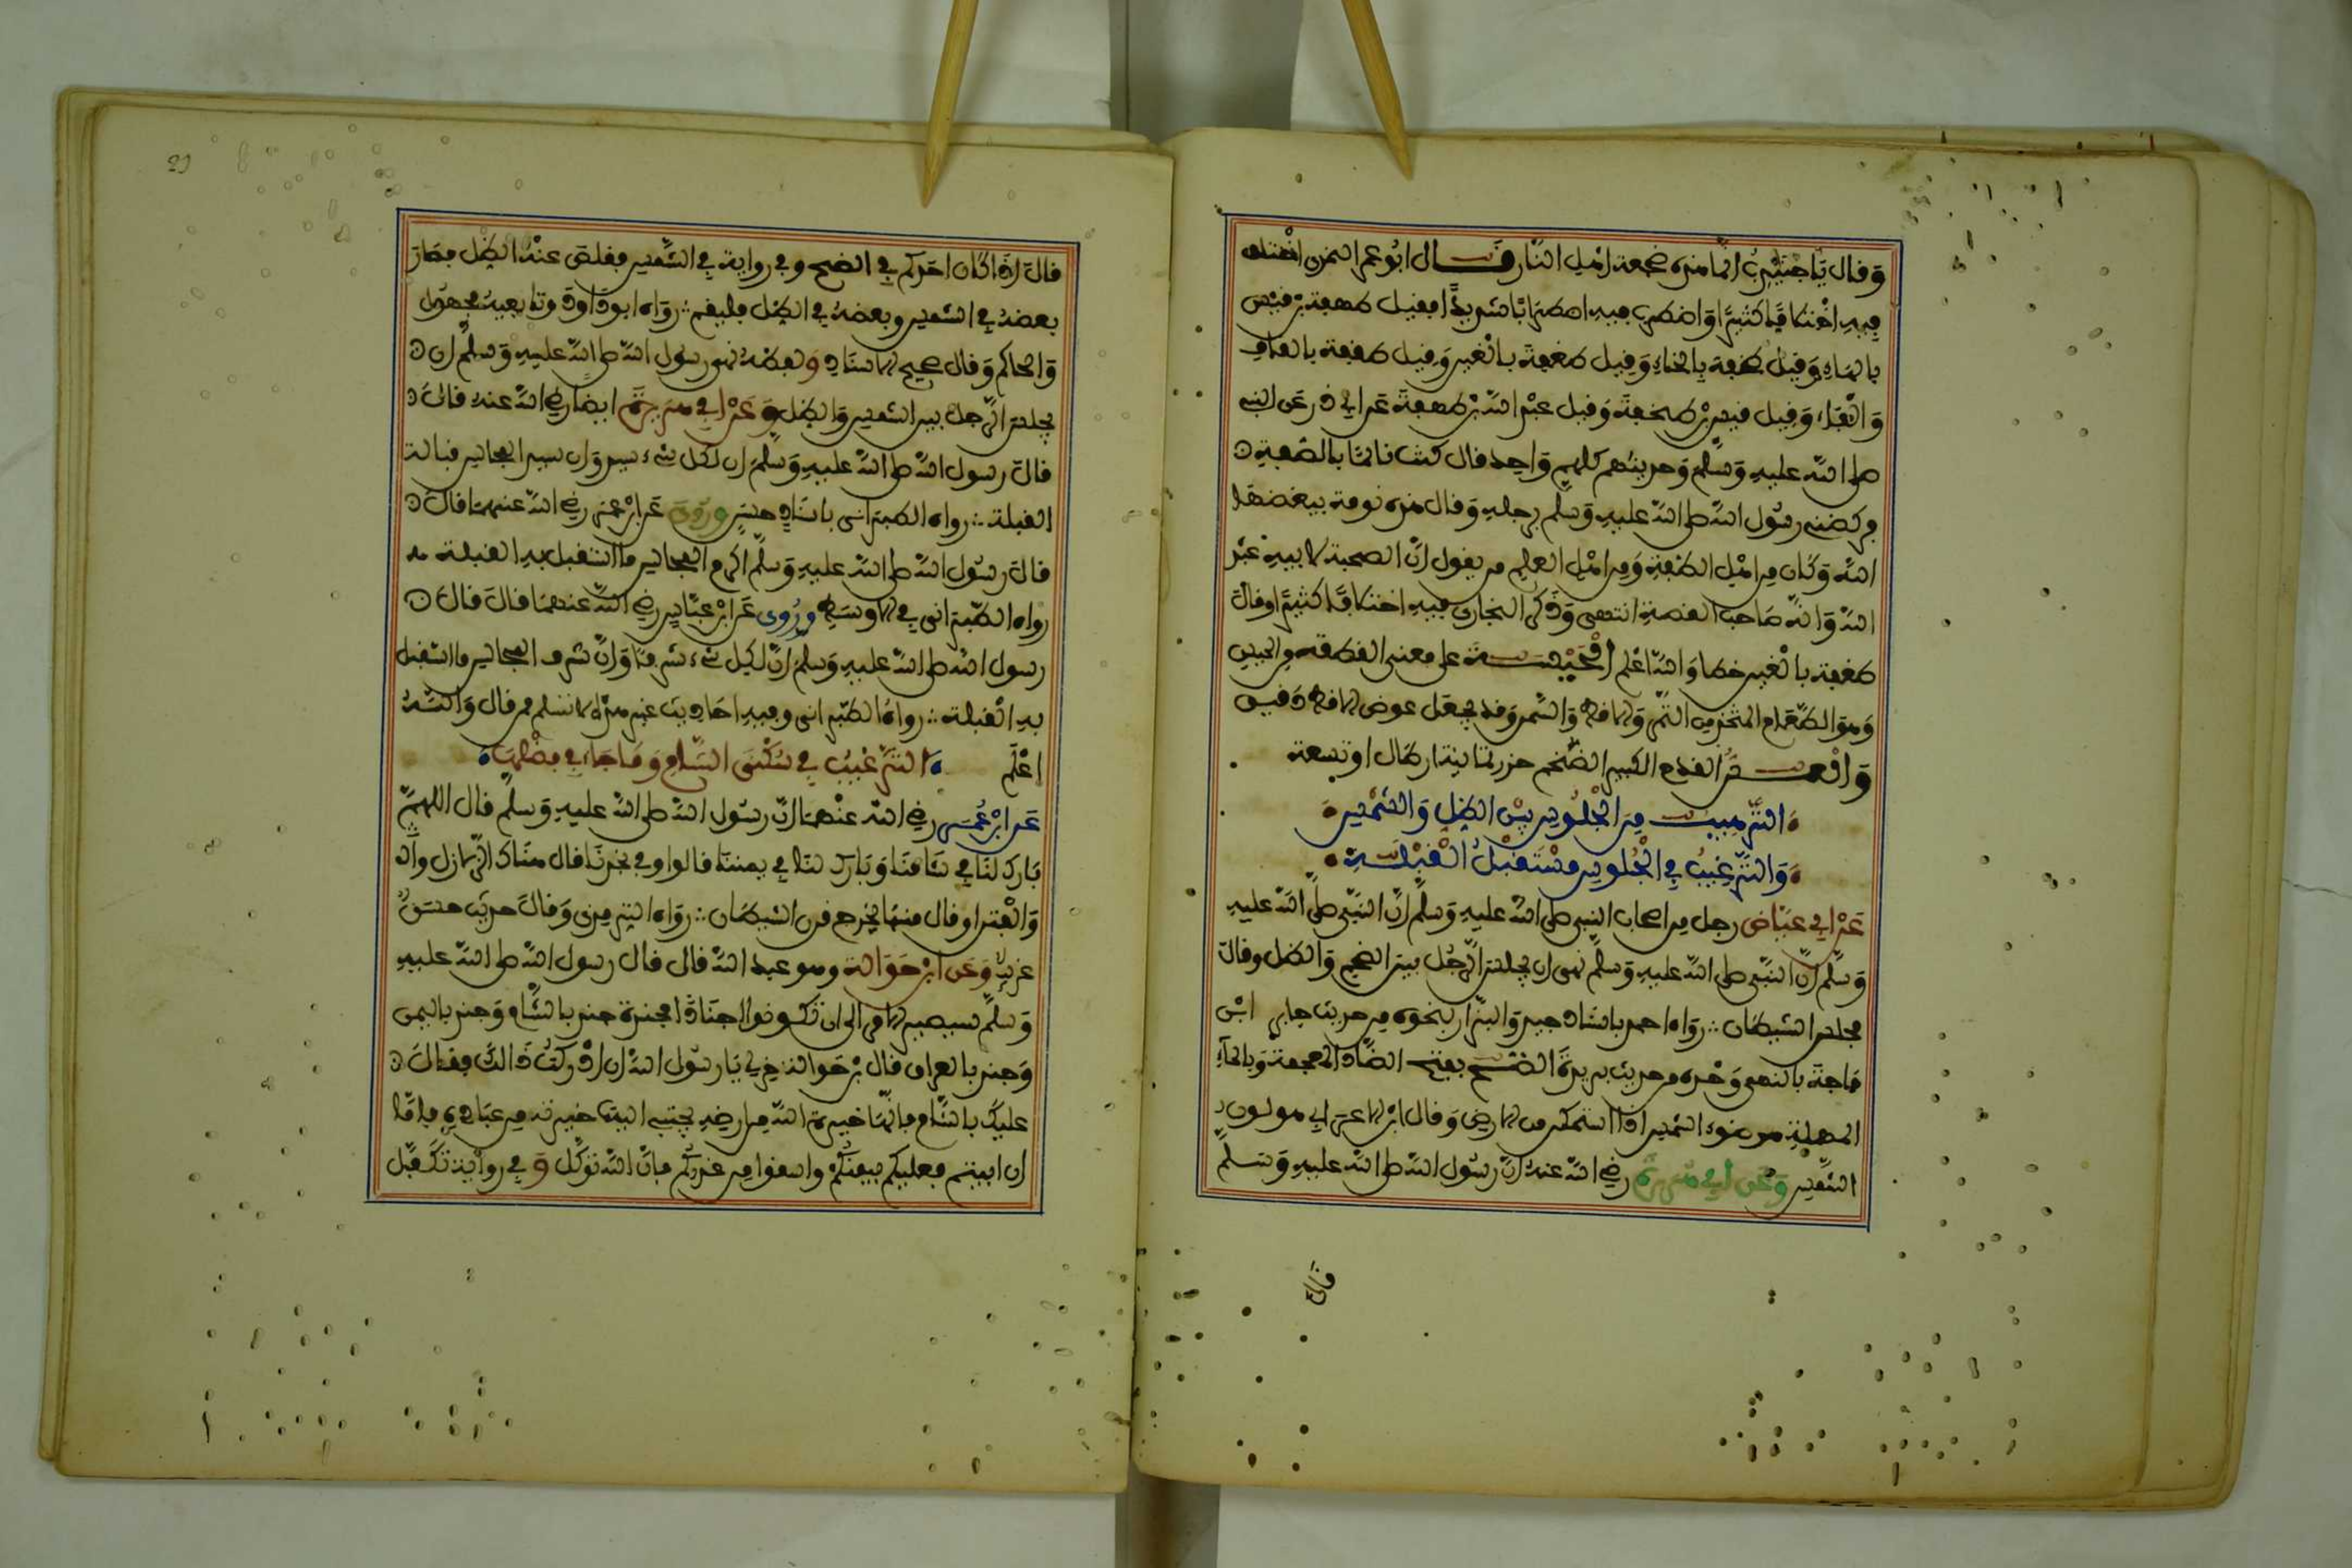 وقال يا جنيدب انما هذه ضجعة اهل النار قال ابو عمر النمري اختلف
فيه اختلافا كثيرا واضطرب فيه اضطرابا شديدا فقيل طهفة بن قيس
بالهاء وقيل طخفة بالخاء وقيل طغفة بالغين وقيل طقفة بالقاف
والفاء وقيل قيس بن طخفة وقيل عبد الله بن طهفة عن ابي ذر عن النبي
صلى الله عليه وسلم وحديثهم كلهم واحد قال كنت نائما بالصفة
فركضني رسول الله صلى الله عليه وسلم برجله وقال هذه نومة يبغضها
الله وكان من اهل الصفة ومن اهل العلم من يقول ان الصحبة لابيه عبد
الله وانه صاحب القصة انتهى وذكر البخاري فيه اختلافا كثيرا وقال
طغفة بالغين خطا والله اعلم الحيسة على معنى القطعة من الحيس
وهو الطعام المتخذ من التمر والاقط والسمن وقد يجعل عوض الاقط دقيق
والعس القدح الكبير الضخم حزر ثمانية ارطال او تسعة
الترهيب من الجلوس بين الظل والشمس
والترغيب في الجلوس مستقبل القبلة
عن ابي عياض رجل من اصحاب النبي صلى الله عليه وسلم ان النبي صلى الله عليه
وسلم ان النبي صلى الله عليه وسلم نهى ان يجلس الرجل بين الضح والظل وقال
مجلس الشيطان رواه احمد باسناد جيد والبزار بنحوه من حديث جابر ابن
ماجة بالنهي وحده من حديث بريدة الضح بفتح الضاد المعجمة وبالحاء
المهملة هو ضوء الشمس اذا استمكن من الارض وقال ابن الاعرابي هو لون
الشمس وعن ابي هريرة رضي الله عنه ان رسول الله صلى الله عليه وسلم
قال
29
قال اذا كان احدكم في الضح وفي رواية في الشمس فقلص عنه الظل فصار
بعضه في الشمس وبعضه في الظل فليقم رواه ابو داود وتابعيه مجهول
والحاكم وقال صحيح الاسناد ولفظه نهى رسول الله صلى الله عليه وسلم ان
يجلس الرجل بين الشمس والظل وعن ابي هريرة ايضا رضي الله عنه قال
قال رسول الله صلى الله عليه وسلم ان لكل شيء سيد وان سيد المجالس قبالة
القبلة رواه الطبراني باسناد حسن وروي عن ابن عمر رضي الله عنهما قال
قال رسول الله صلى الله عليه وسلم اكرم المجالس ما استقبل به القبلة
رواه الطبراني في الاوسط وروي عن ابن عباس رضي الله عنهما قال قال
رسول الله صلى الله عليه وسلم ان لكل شيء شرفا وان شرف المجالس ما استقبل
به القبلة رواه الطبراني وفيه احاديث غير هذه لا تسلم من مقال والله
اعلم الترغيب في سكنى الشام وما جاء في فضلها
عن ابن عمر رضي الله عنهما ان رسول الله صلى الله عليه وسلم قال اللهم
بارك لنا في شامنا وبارك لنا في يمننا قالوا وفي نجدنا قال هناك الزلازل
والفتن او قال منها يخرج قرن الشيطان رواه الترمذي وقال حديث حسن
غريب وعن ابن حوالة وهو عبد الله قال قال رسول الله صلى الله عليه
وسلم سيصير الامر الى ان تكونوا اجنادا مجندة جند بالشام وجند باليمن
وجند بالعراق قال ابن حوالة خر لي يا رسول الله ان ادركت ذالك فقال
عليك بالشام فانها خيرة الله من ارضه يجتبي اليها خيرته من عباده فاما
ان ابيتم فعليكم بيمنكم واسقوا من غدركم فان الله توكل وفي رواية تكفل